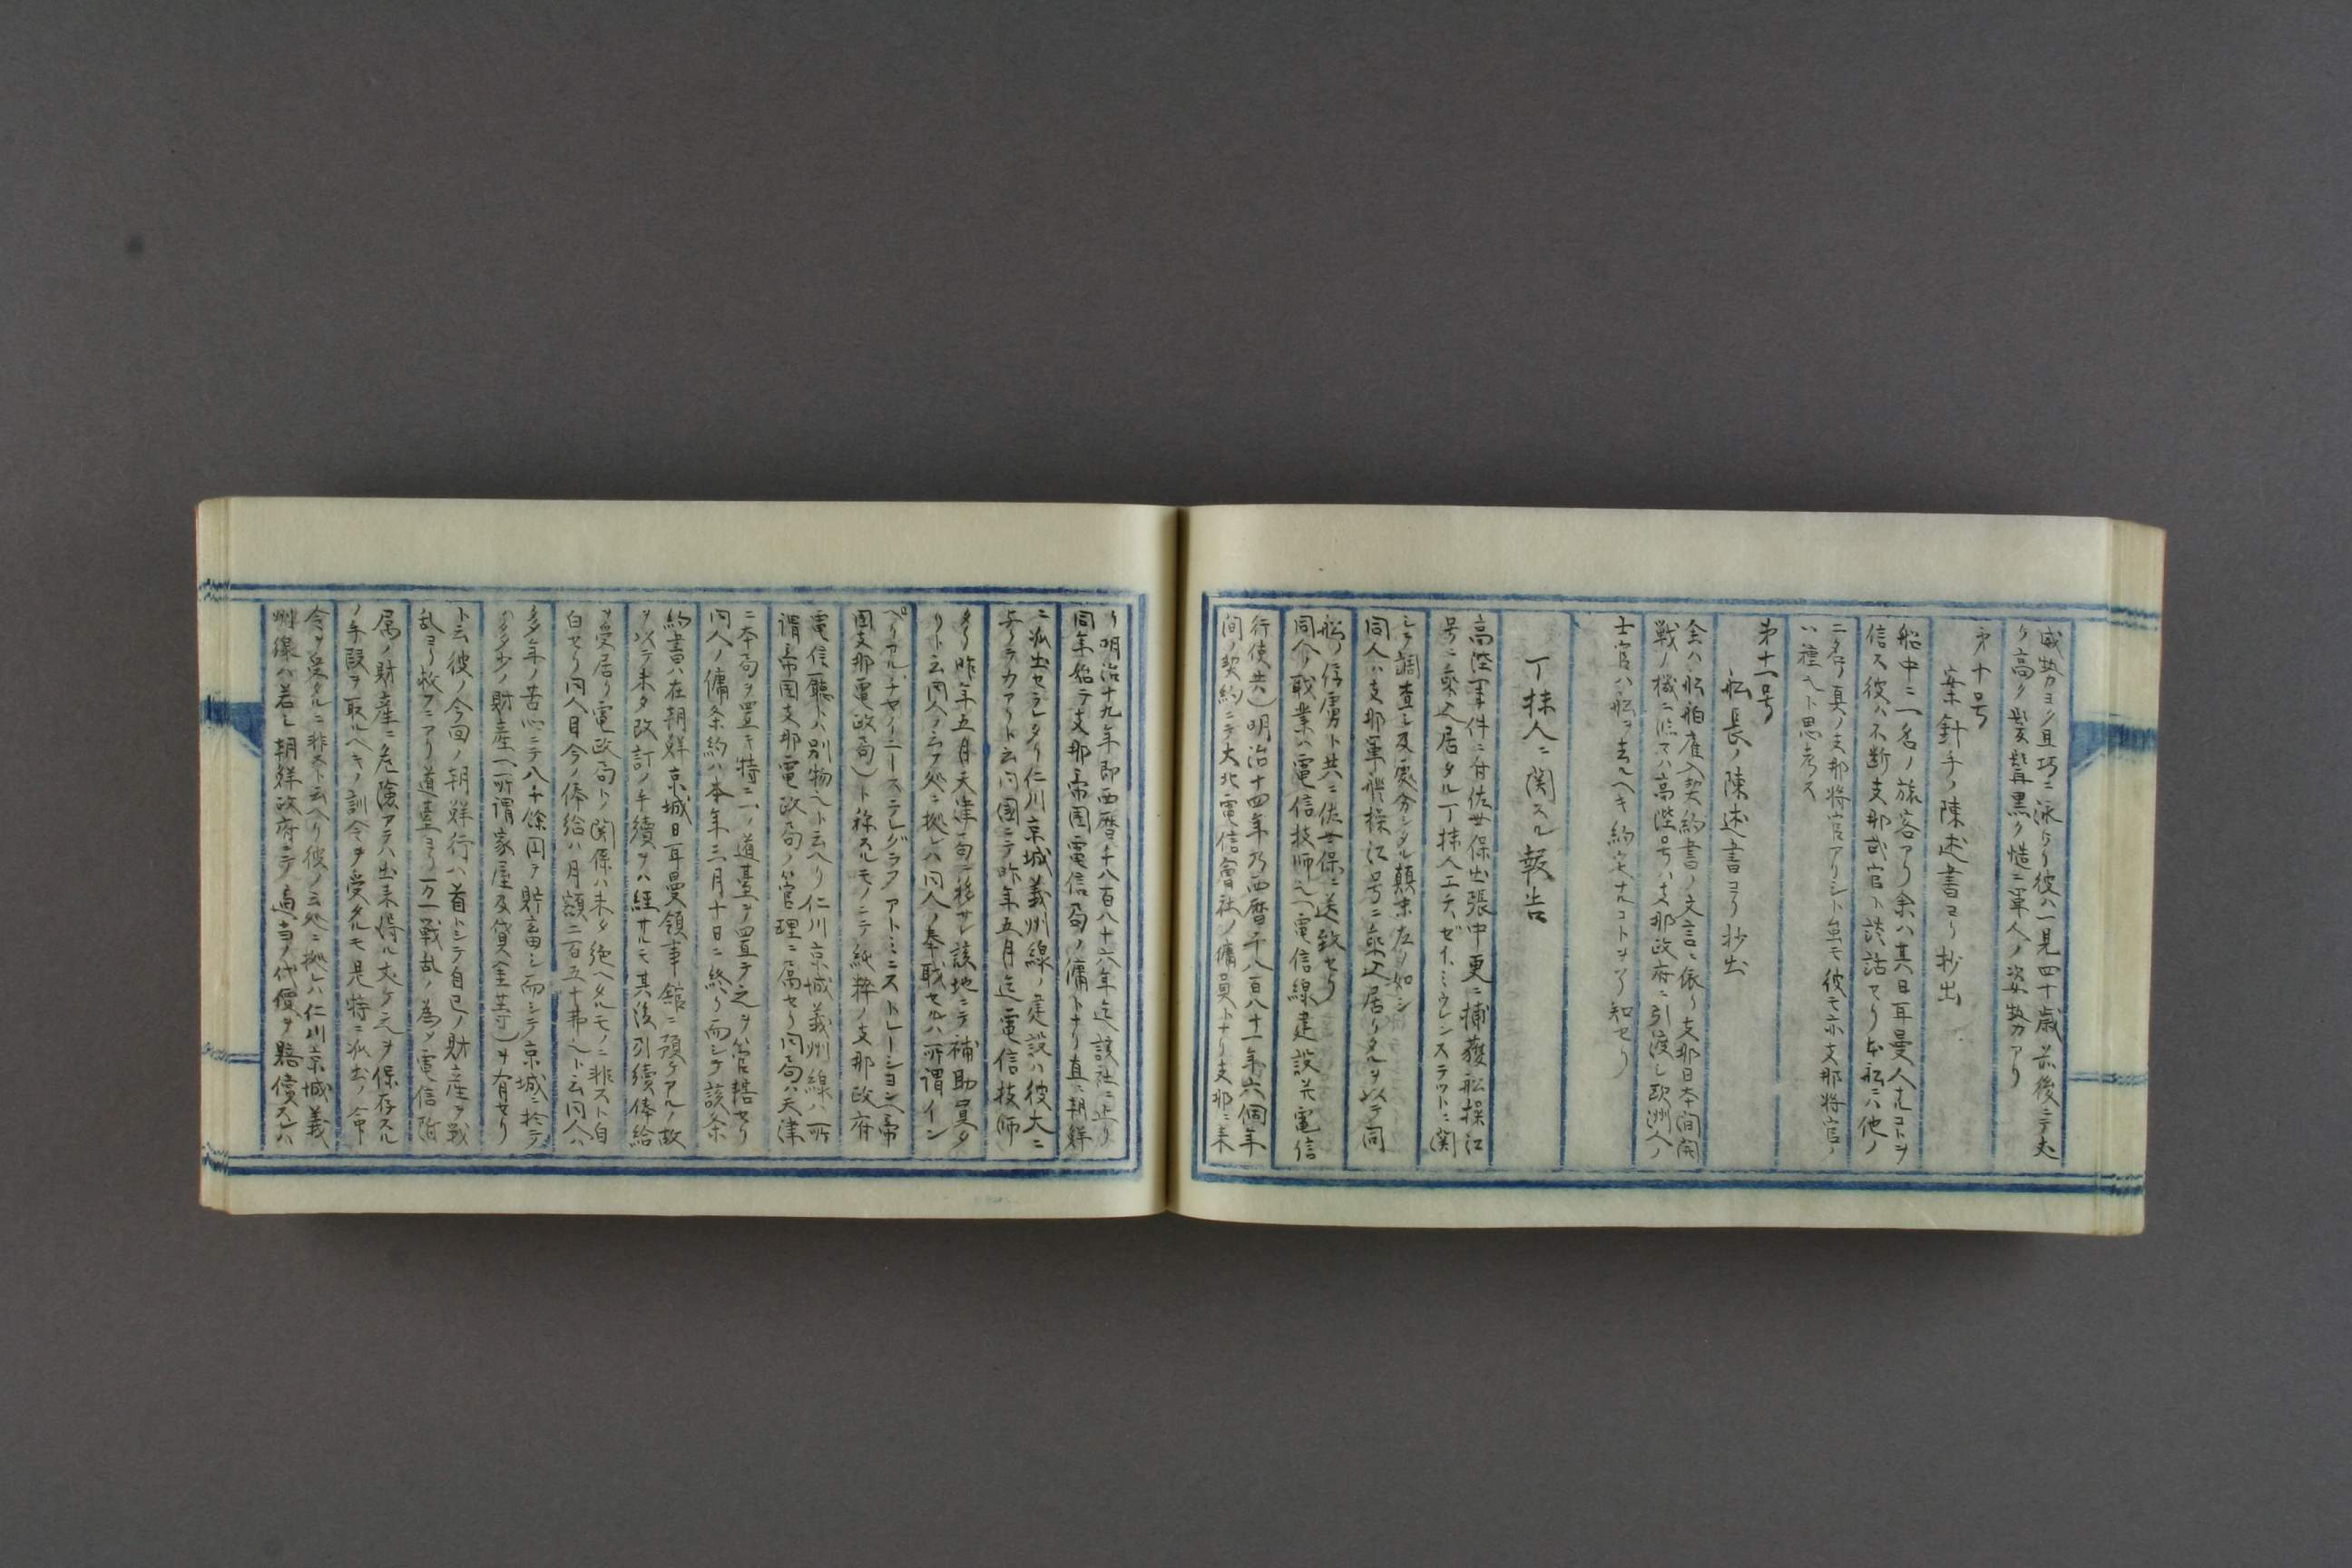 威勢ヨク且巧ニ泳ケリ彼ハ一見四十歳前後ニテ丈
ケ高ク髪髯黒ク慥ニ軍人ノ姿勢アリ
第十号
案針手ノ陳述書ヨリ抄出
船中ニ一名ノ旅客アリ余ハ其日耳曼人ナルコトヲ
信ス彼ハ不断支那武官ト談話セリ本船ニハ他ノ
二名ノ真ノ支那将官アリシト雖モ彼モ亦支那将官ノ
一種ナルト思考ス
第十一号
船長ノ陳述書ヨリ抄出
余ハ船舶雇入契約書ノ文言ニ依リ支那日本間開
戦ノ機ニ臨テハ高陞号ハ支那政府ニ引渡シ欧洲人ノ
士官ハ船ヲ去ルヘキ約定ナルコトヲ了知セリ
丁抹人ニ関スル報告
高陞軍件ニ付佐世保出張中更ニ捕獲船操江
号ニ乗込居タル丁抹人エチ、ゼイ、ミウレンステットニ関
シテ調査シ及処分シタル顛末左ノ如シ
同人ハ支那軍艦操江号ニ乗込居リタルヲ以テ同
船ノ俘虜ト共ニ佐世保ニ送致セリ
同人ノ職業ハ電信技師ニテ電信線建設并電信
行使共)明治十四年乃西暦千八百八十一年六個年
間ノ契約ニテ大北電信會社ノ傭員トナリ支那ニ来
リ明治十九年即西暦千八百八十六年迄該社ニ止リ
同年始テ支那帝国電信局ノ傭トナリ直ニ朝鮮
ニ派出セラレタリ仁川京城義州線ノ建設ハ彼大ニ
与リテ力アリト云同国ニテ昨年五月迄電信技師
タリ昨年五月天津局ニ移サレ該地ニテ補助員タ
リト云同人ノ云フ処ニ拠レハ同人ノ奉職セルハ所謂イン
ペリアル、チヤイニース、テレグラフ アトミニストレーシヨン(帝
国支那電政局)ト称スルモノニテ純粋ノ支那政府
電信廳トハ別物ナリト云ヘリ仁川京城義州線ハ所
謂帝国支那電政局ノ管理ニ属セリ同局ハ天津
ニ本局ヲ置キ特ニ一ノ道臺ヲ置テ之ヲ管轄セリ
同人ノ傭条約ハ本年三月十日ニ終リ而シテ該条
約書ハ在朝鮮京城日耳曼領事館ニ預ケアルノ故
ヲ以テ未タ改訂ノ手續ヲハ経サルモ其後引續俸給
ヲ受居リ電政局トノ関係ハ未タ絶ヘタルモノニ非スト自
白セリ同人目今ノ俸給ハ月額二百五十弗ナリト云同人ハ
多年ノ苦心ニテ八千餘円ヲ貯畜シ而シテ京城ニ於テ
ハ多少ノ財産(所謂家屋及貸金等)ヲ有セリ
ト云彼ノ今回ノ朝鮮行ハ首トシテ自己ノ財産ヲ戦
乱ヨリ救フニアリ道臺ヨリ万一戦乱ノ為メ電信附
属ノ財産ニ危険アラハ出来得ル丈ケ之ヲ保存スル
ノ手段ヲ取ルヘキノ訓令ヲ受タルモ是特ニ派出ノ命
令ヲ受タルニ非スト云ヘリ彼ノ云処ニ拠レハ仁川京城義
州線ハ若シ朝鮮政府ニテ適当ノ代價ヲ賠償スレハ